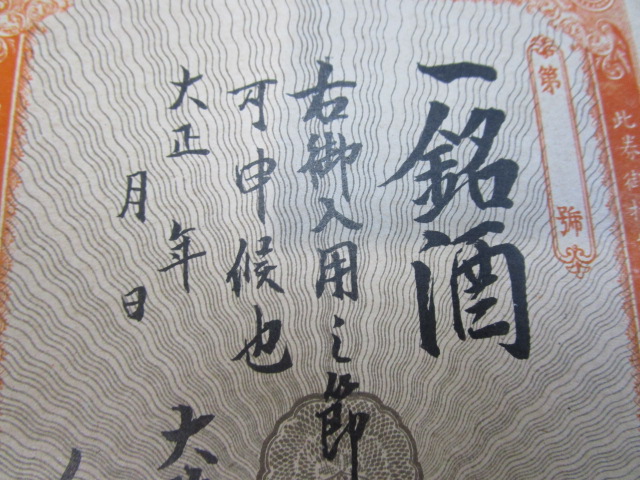 此券
第 號
一銘酒
右御入用之節
可申候也
大正 年
月 日
大